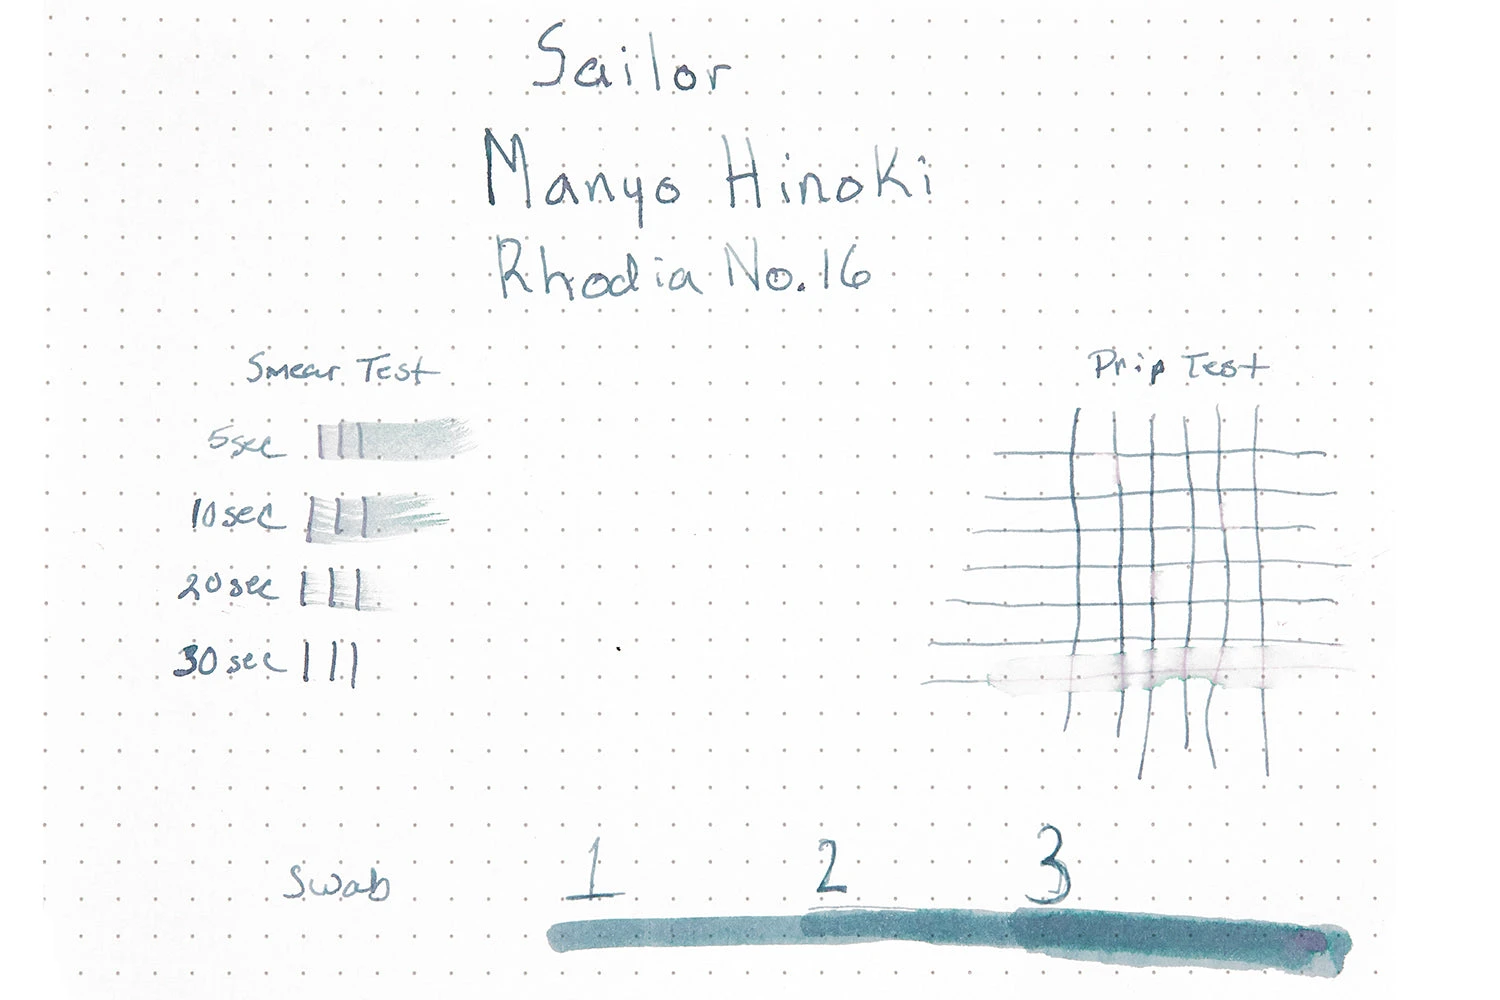 Sailor
Manyo Hinoki
Rhodia No.16
Smear Test
Drip Test
5sec
10sec
20sec
30sec
Swab
1 2 3